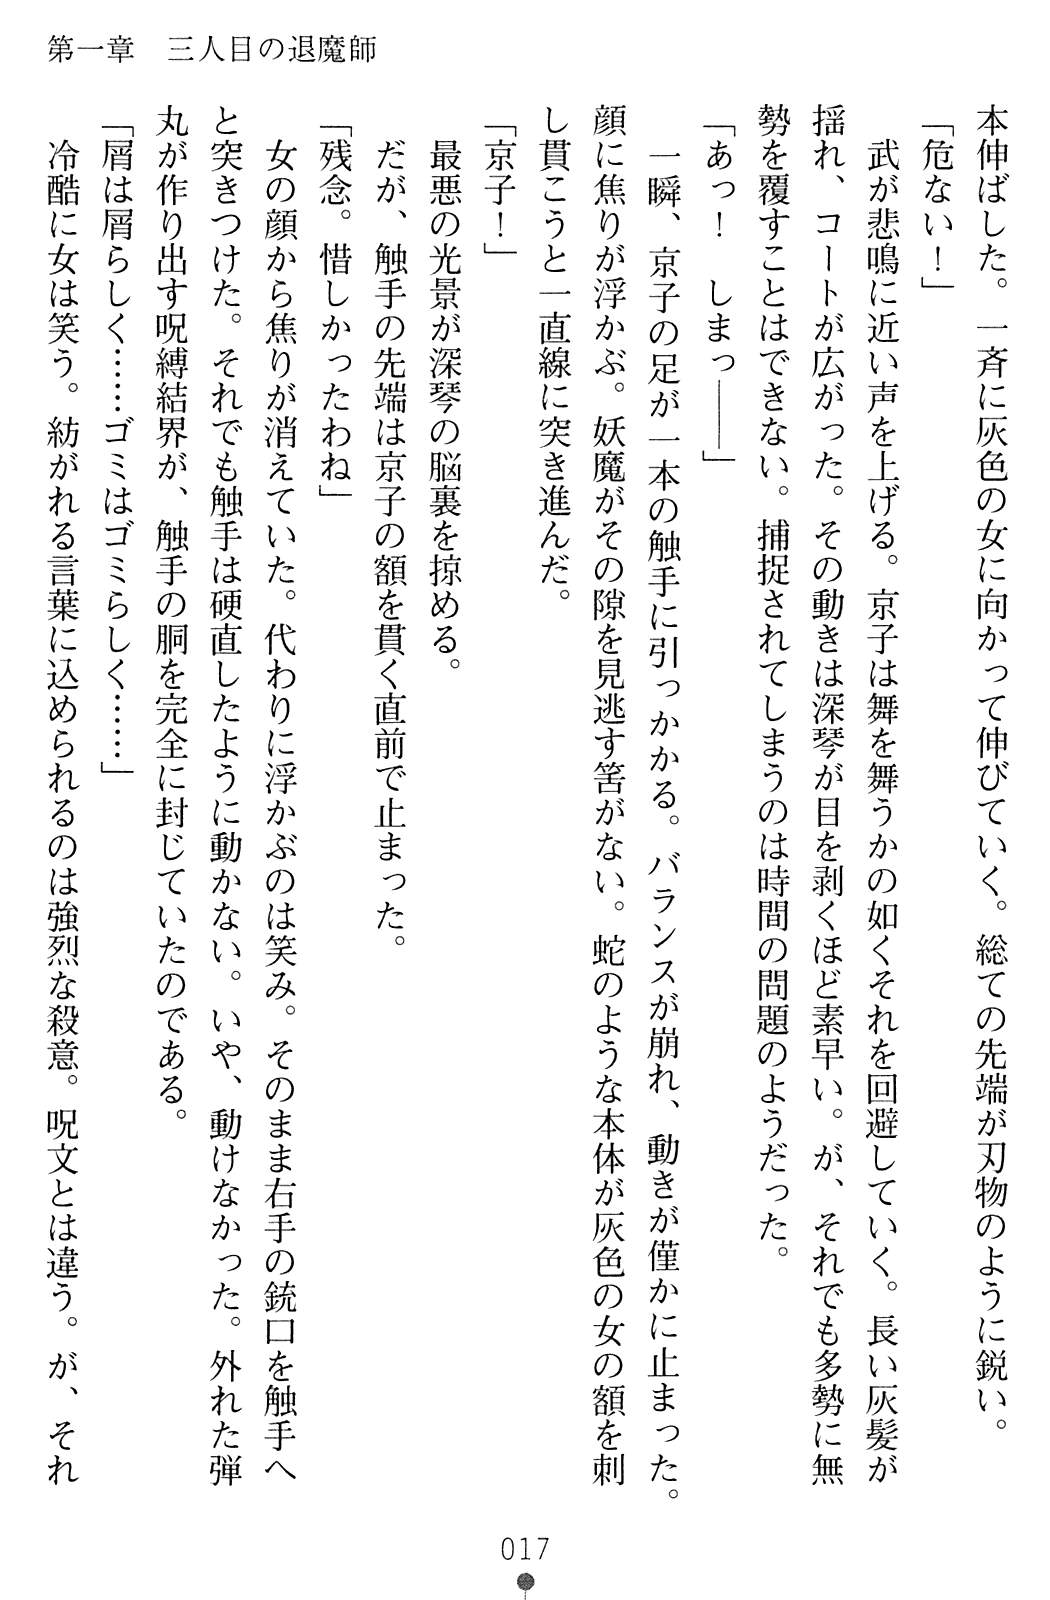 第一章　三人目の退魔師
本伸ばした。一斉に灰色の女に向かって伸びていく。総ての先端が刃物のように鋭い。
「危ない！」
　武が悲鳴に近い声を上げる。京子は舞を舞うかの如くそれを回避していく。長い灰髪が
揺れ、コートが広がった。その動きは深琴が目を剥くほど素早い。が、それでも多勢に無
勢を覆すことはできない。捕捉されてしまうのは時間の問題のようだった。
「あっ！　しまっ――」
　一瞬、京子の足が一本の触手に引っかかる。バランスが崩れ、動きが僅かに止まった。
顔に焦りが浮かぶ。妖魔がその隙を見逃す筈がない。蛇のような本体が灰色の女の額を刺
し貫こうと一直線に突き進んだ。
「京子！」
　最悪の光景が深琴の脳裏を掠める。
　だが、触手の先端は京子の額を貫く直前で止まった。
「残念。惜しかったわね」
　女の顔から焦りが消えていた。代わりに浮かぶのは笑み。そのまま右手の銃口を触手へ
と突きつけた。それでも触手は硬直したように動かない。いや、動けなかった。外れた弾
丸が作り出す呪縛結界が、触手の胴を完全に封じていたのである。
「屑は屑らしく……ゴミはゴミらしく……」
　冷酷に女は笑う。紡がれる言葉に込められるのは強烈な殺意。呪文とは違う。が、それ
017